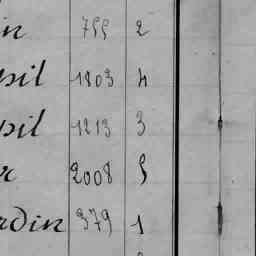 in 799 2
sil 1803 4
sil 1213 3
r 2008 5
rdin 379 1